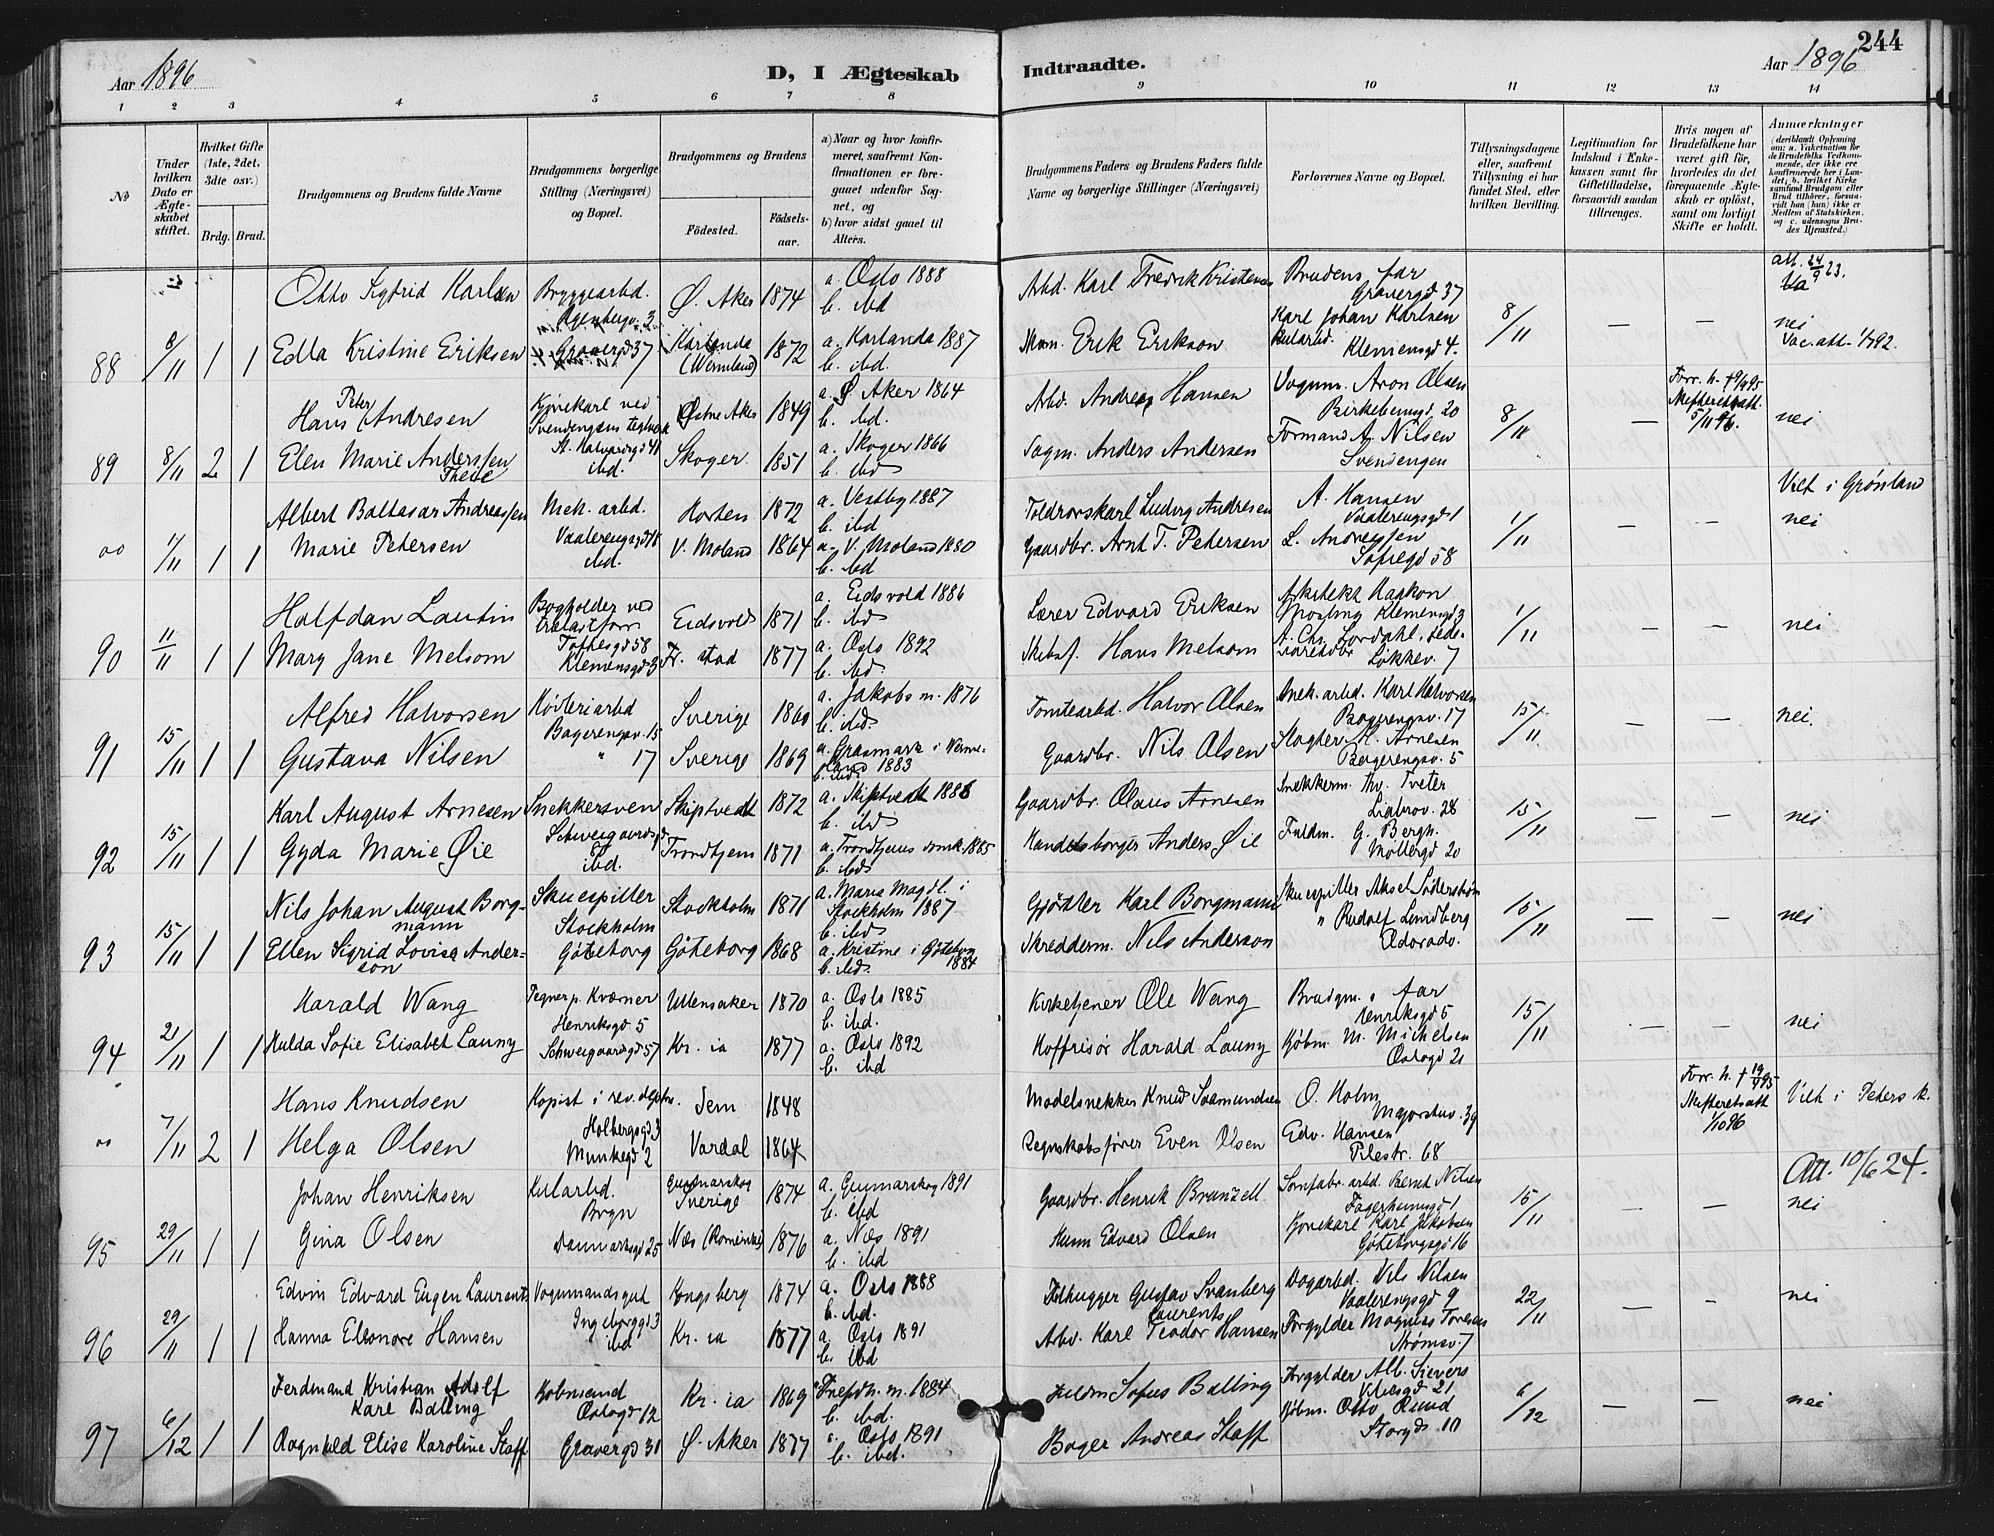 244
Aar 1896
D, I Ægteskab Indtraadte.
Aar 1896
1 2 3 4 5 6 7 8 9 10 11 12 13 14
No
Under hvilken Dato er Ægteskabet stiftet.
Hvilket Gifte (1ste, 2det, 3die osv.)
Brdg. Brud.
Brudgommens og Brudens fulde Navne
Brudgommens borgerlige Stilling (Næringsvei) og Bopæl.
Brudgommens og Brudens
Fødested. Fødselsaar.
a) Naar og hvor konfirmeret, saafremt Konfirmationen er foregaaet udenfor Sognet, og
b) hvor sidst gaaet til Alters.
Brudgommens Faders og Brudens Faders fulde Navne og borgerlige Stillinger (Næringsvei)
Forlovernes Navne og Bopæl.
Tillysningsdagene eller, saafremt Tillysning ei har fundet Sted, efter hvilken Bevilling.
Legitimation for Indskud i Enkekassen samt for Giftetilladelse, forsaavidt saadan tiltrænges.
Hvis nogen af Brudefolkene har været gift før, hvorledes da det foregaaende Ægteskab er opløst, samt om lovligt Skifte er holdt.
Anmærkninger
Otto Sigfrid Karlsen Bryggearbd. Ø. Aker 1874 a. Oslo 1888 b. ibd Arbd. Karl Fredrik Kristensen Brudens far Gravergd 37 att. 24/9 23.
88 8/11 1 1 Edla Kristine Eriksen Gravergd 37 Karlanda (Wermland) 1872 a. Karlanda 1887 b. ibd. Mam. Erik Erikson Karl Johan Karlsen Kularbd. Klemensgd 4. 8/11 — — nei Vac. att. 1/7 92.
Hans Peter Andresen Kjørekarl ved Svendengens teglverk St. Halvardsgd 41 Østre Aker 1849 a. Ø. Aker 1864 b. ibd. Arbd. Andreas Hansen Vognm. Aron Olsen Birkebeinergd. 20 8/11 — Forr. h. † 9/9 95 Skifteretsatt. 5/11 96. nei
89 8/11 2 1 Elen Marie Anderssen These ibd. Skoger 1851 a. Skoger 1866 b. ibd Sagm. Anders Andersen Formand A. Nilsen Svendengen
Albert Baltasar Andreassen Mek. arbd. Vaalerengsgd 18 Horten 1872 a. Vestby 1887 b. ibd Toldrorskarl Ludvig Andresen A. Hansen Vaalerengsgd 1 1/11 — — Viet i Grønland nei
oo 1/11 1 1 Marie Petersen ibd. V. Moland 1864 a. V. Moland 1880 b. ibd Gaardbr. Arnt T. Petersen L. Andreassen Sofiegd 58
Halfdan Lautin Bogholder ved trælastforr. Toftesgd 58 Eidsvold 1871 a. Eidsvold 1886 b. ibd Lærer Edvard Eriksen Arkitekt Haakon Mosling Klemensgd 3 1/11 — — nei
90 11/11 1 1 Mary Jane Melsom Klemensgd 3 Fr. stad 1877 a. Oslo 1892 b. ibd Skibsf. Hans Melsom A. Chr. Lordahl Løkkev. 7
Alfred Halvorsen Høvleriarbd Bagerengsv. 15 Sverige 1860 a. Jakobs m. 1876 b. ibd. Tomtearbd. Halvor Olsen Mek. arbd. Karl Halvorsen Bagerengsv. 17 15/11 — — nei.
91 15/11 1 1 Gustava Nilsen " 17 Sverige 1869 a. Grasmark i Vermeland 1883 b. ibd. Gaardbr. Nils Olsen Slagter M. Arnesen Bagerengsv. 5
Karl August Arnesen Snekkersven Schweigaardsgd Skiptvedt 1872 a. Skiptvedt 1886 b. ibd Gaardbr. Olaus Arnesen Snekkerm. Thv. Tveter Ljabrov. 28 15/11 — — nei
92 15/11 1 1 Gyda Marie Øie ibd. Trondhjem 1871 a. Trondhjems domk. 1885 b. ibd Handelsborger Anders Øie Fuldm. G. Bergh. Møllergd 20
Nils Johan August Borgmann Skuespiller Stockholm Stockholm 1871 a. Maria Magdl. i Stockholm 1887 b. ibd Gjørtler Karl Borgmann Skuespiller Aksel Söderström " Rudolf Lundberg Eldorado. 15/11 — — nei
93 15/11 1 1 Ellen Sigrid Lovisa Anderson Göteborg Göteborg 1868 a. Kristine i Göteborg 1884 b. ibd. Skredderm. Nils Anderson
Harald Wang Tegner p. Kværner Henriksgd 5 Ullensaker 1870 a. Oslo 1885 b. ibd. Kirketjener Ole Wang Brudgm.s far Henriksgd 5 15/11 — — nei
94 21/11 1 1 Hulda Sofie Elisabet Launy Schweigaardsgd 57 Kr. ia 1877 a. Oslo 1892 b. ibd Hoffrisør Harald Launy Kjøbm. M. Mikelsen Oslogd 21
Hans Knudsen Kopist i rev. dept. Holbergsgd 3 1848 Modelsnekker Knud Svamundsen O. Holm Majorstuv. 39 Forr. h. † 19/7 95 Skifteretsatt 1/10 96 Viet i Peters k.
oo 7/11 2 1 Helga Olsen Munkegd 2 Vardal 1864 Regnskabsfører Even Olsen Edv. Hansen Pilestr. 68
Johan Henriksen Kularbd. Bryn Gunnarskog Sverige 1874 a. Gunnarskog 1891 b. ibd Gaardbr. Henrik Brunzell Sømfabr. arbd. Bernt Nilsen Fagerheimgd 1 15/11 — — Att. 10/6 24. nei
95 29/11 1 1 Gina Olsen Danmarksgd 25 Næs (Romerike) 1876 a. Næs 1891 b. ibd Husm Edvard Olsen Kjørekarl Karl Jakobsen Göteborgsgd 16
Edvin Edvard Eugen Laurents Vognmandsgut Ingeborggd 3 Kongsberg 1874 a. Oslo 1888 b. ibd. Filhugger Gustav Svanberg Laurents Vogarbd. Nils Nilsen Vaalerengsgd 9 22/11 — — nei
96 29/11 1 1 Hanna Eleonore Hansen ibd Kr. ia 1877 a. Oslo 1891 b. ibd Arbd. Karl Teodor Hansen Forgylder Magnus Toresen Strømsv. 7
Ferdinand Kristian Adolf Karl Balling Kobmand Oslogd 12 Kr. ia 1869 Trefdh. m. 1884 b. ibd. Fuldm Sofus Balling Forgylder Alb. Sievers 21 6/12 — — nei
97 6/12 1 1 Ragnhild Elise Karoline Staff Gravergd 31 Ø. Aker 1877 a. Oslo 1891 b. ibd. Bager Andreas Staff Kjøbm. Otto Rund Storgd. 10